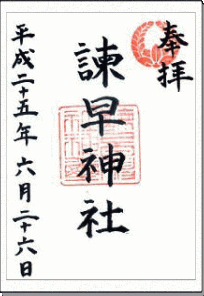 奉拝
諫早神社
平成二十五年六月二十六日